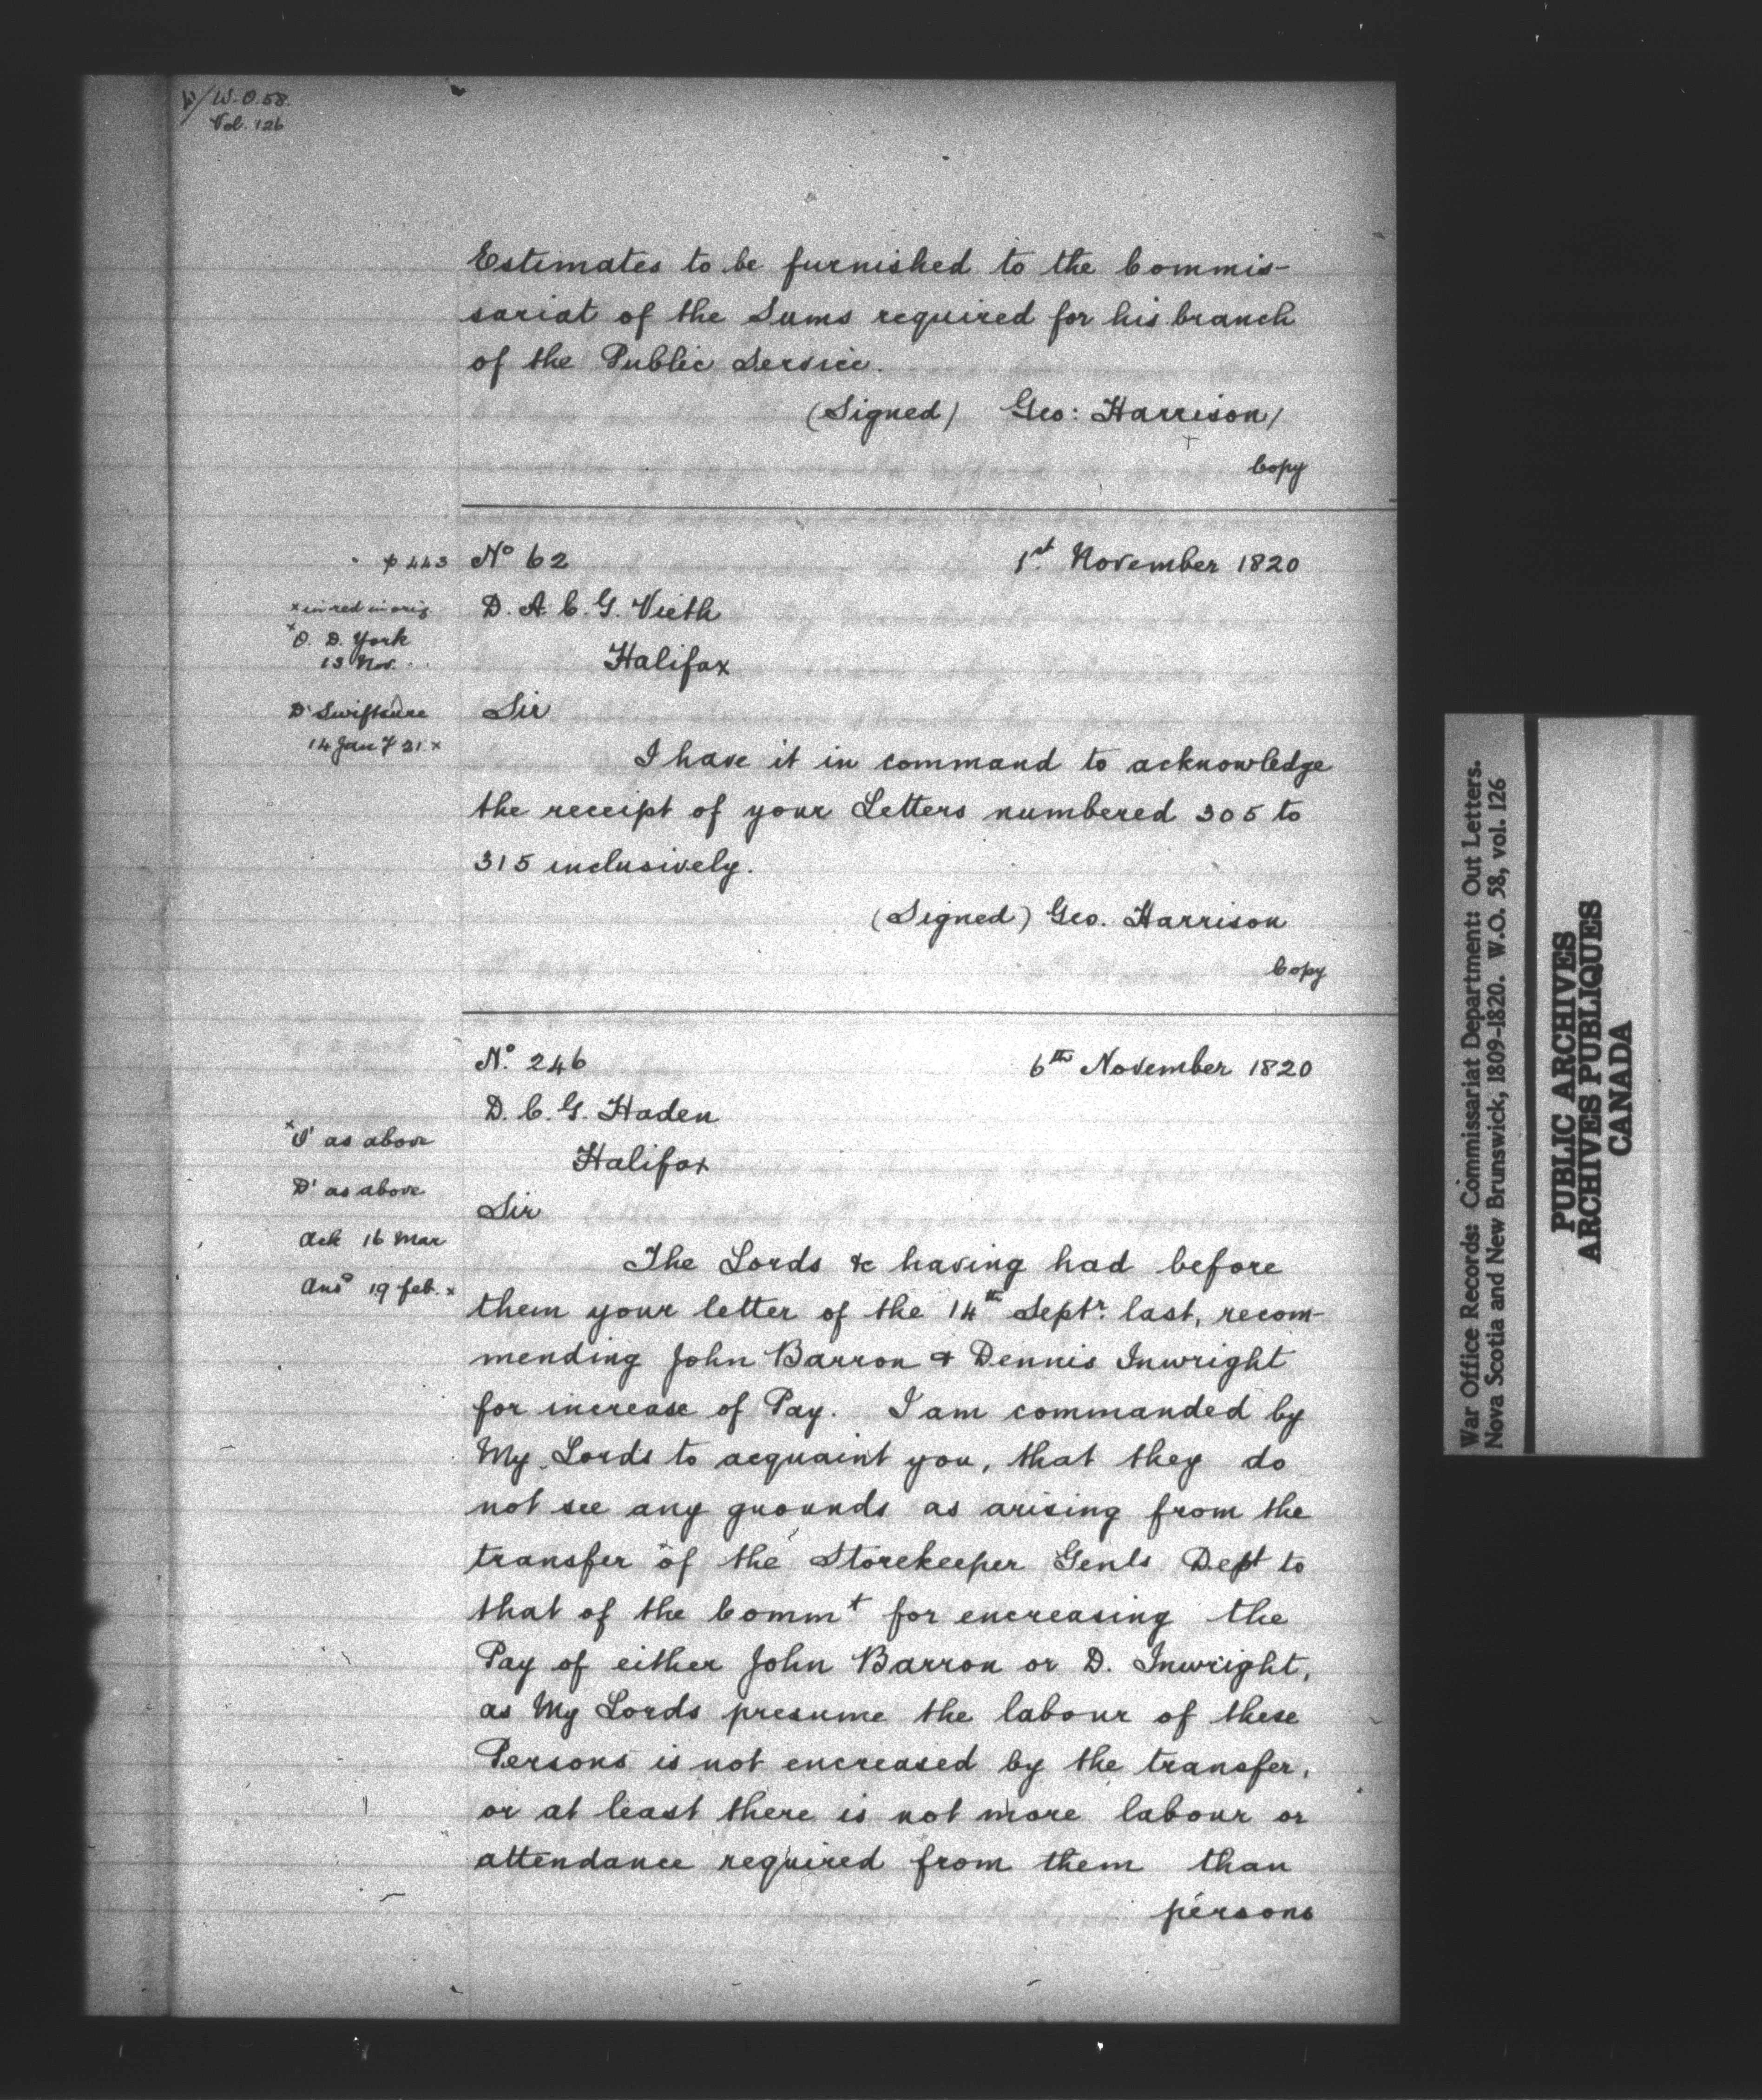 W.O. 58.
Vol. 126
Estimates to be furnished to the Commis-
sariat of the Sums required for his branch
of the Public Service.
(Signed) Geo: Harrison/
Copy
p 443
No 62
1st November 1820
x in red in orig
D. A. C. G. Vieth
x O. D. York
13 Nov.
Halifax
D' Swiftsure
14 Jany 21. x
Sir
I have it in command to acknowledge
the receipt of your Letters numbered 305 to
315 inclusively.
(Signed) Geo. Harrison
Copy
No. 246
6th November 1820
D. C. G. Haden
x O' as above
Halifax
D' as above
Sir
Ack 16 Mar
The Lords &c having had before
Ansd 19 feb. x
them your letter of the 14th Septr. last, recom-
mending John Barron & Dennis Inwright
for increase of Pay. I am commanded by
My Lords to acquaint you, that they do
not see any grounds as arising from the
transfer of the Storekeeper Genls Dept to
that of the Commt for encreasing the
Pay of either John Barron or D. Inwright,
as My Lords presume the labour of these
Persons is not encreased by the transfer,
or at least there is not more labour or
attendance required from them than
persons
War Office Records: Commissariat Department: Out Letters.
Nova Scotia and New Brunswick, 1809-1820. W.O. 58, vol. 126
PUBLIC ARCHIVES
ARCHIVES PUBLIQUES
CANADA